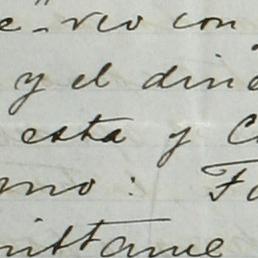 e"- veo con
y el dine
esta y C
mo: Fa
mittame